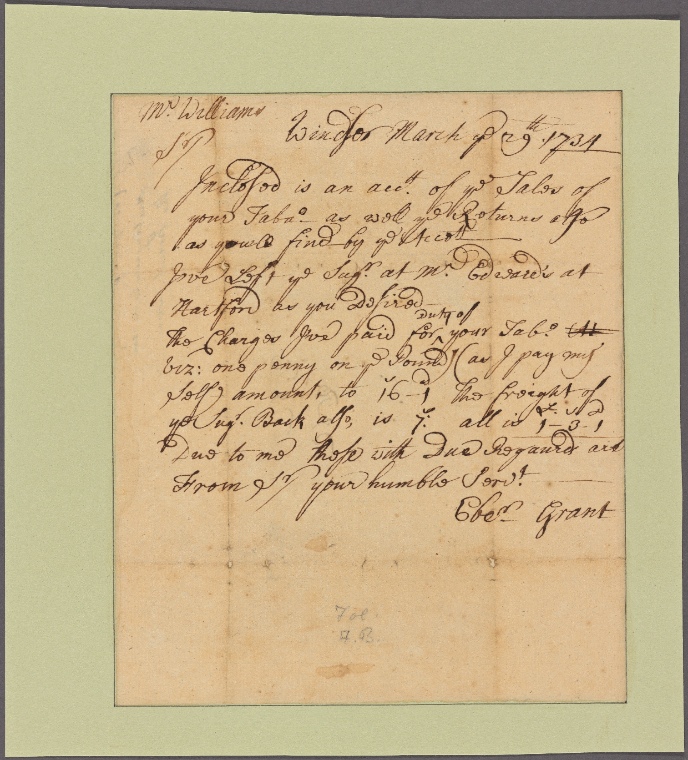 Mr. Williams
Windsor March ye 29th. 1734
Sr/
Inclosed is an acctt. of ye Sales of
your Tabao as well ye Returns also
as youle find by ye Accott
I've Left ye Sugr. at Mr. Edwards at
Hartford as you Desired
duty of
the Charges I've paid for ^ your Tabo.
viz: one penny on ye Pound (as I pay my
Self) amount, to 16-1 The freight of
ye Sugr. Back also, is 7: all is 1-3-1
Due to me these with Due Regaurd are
From Sr/ your humble Servt.
Ebenr Grant